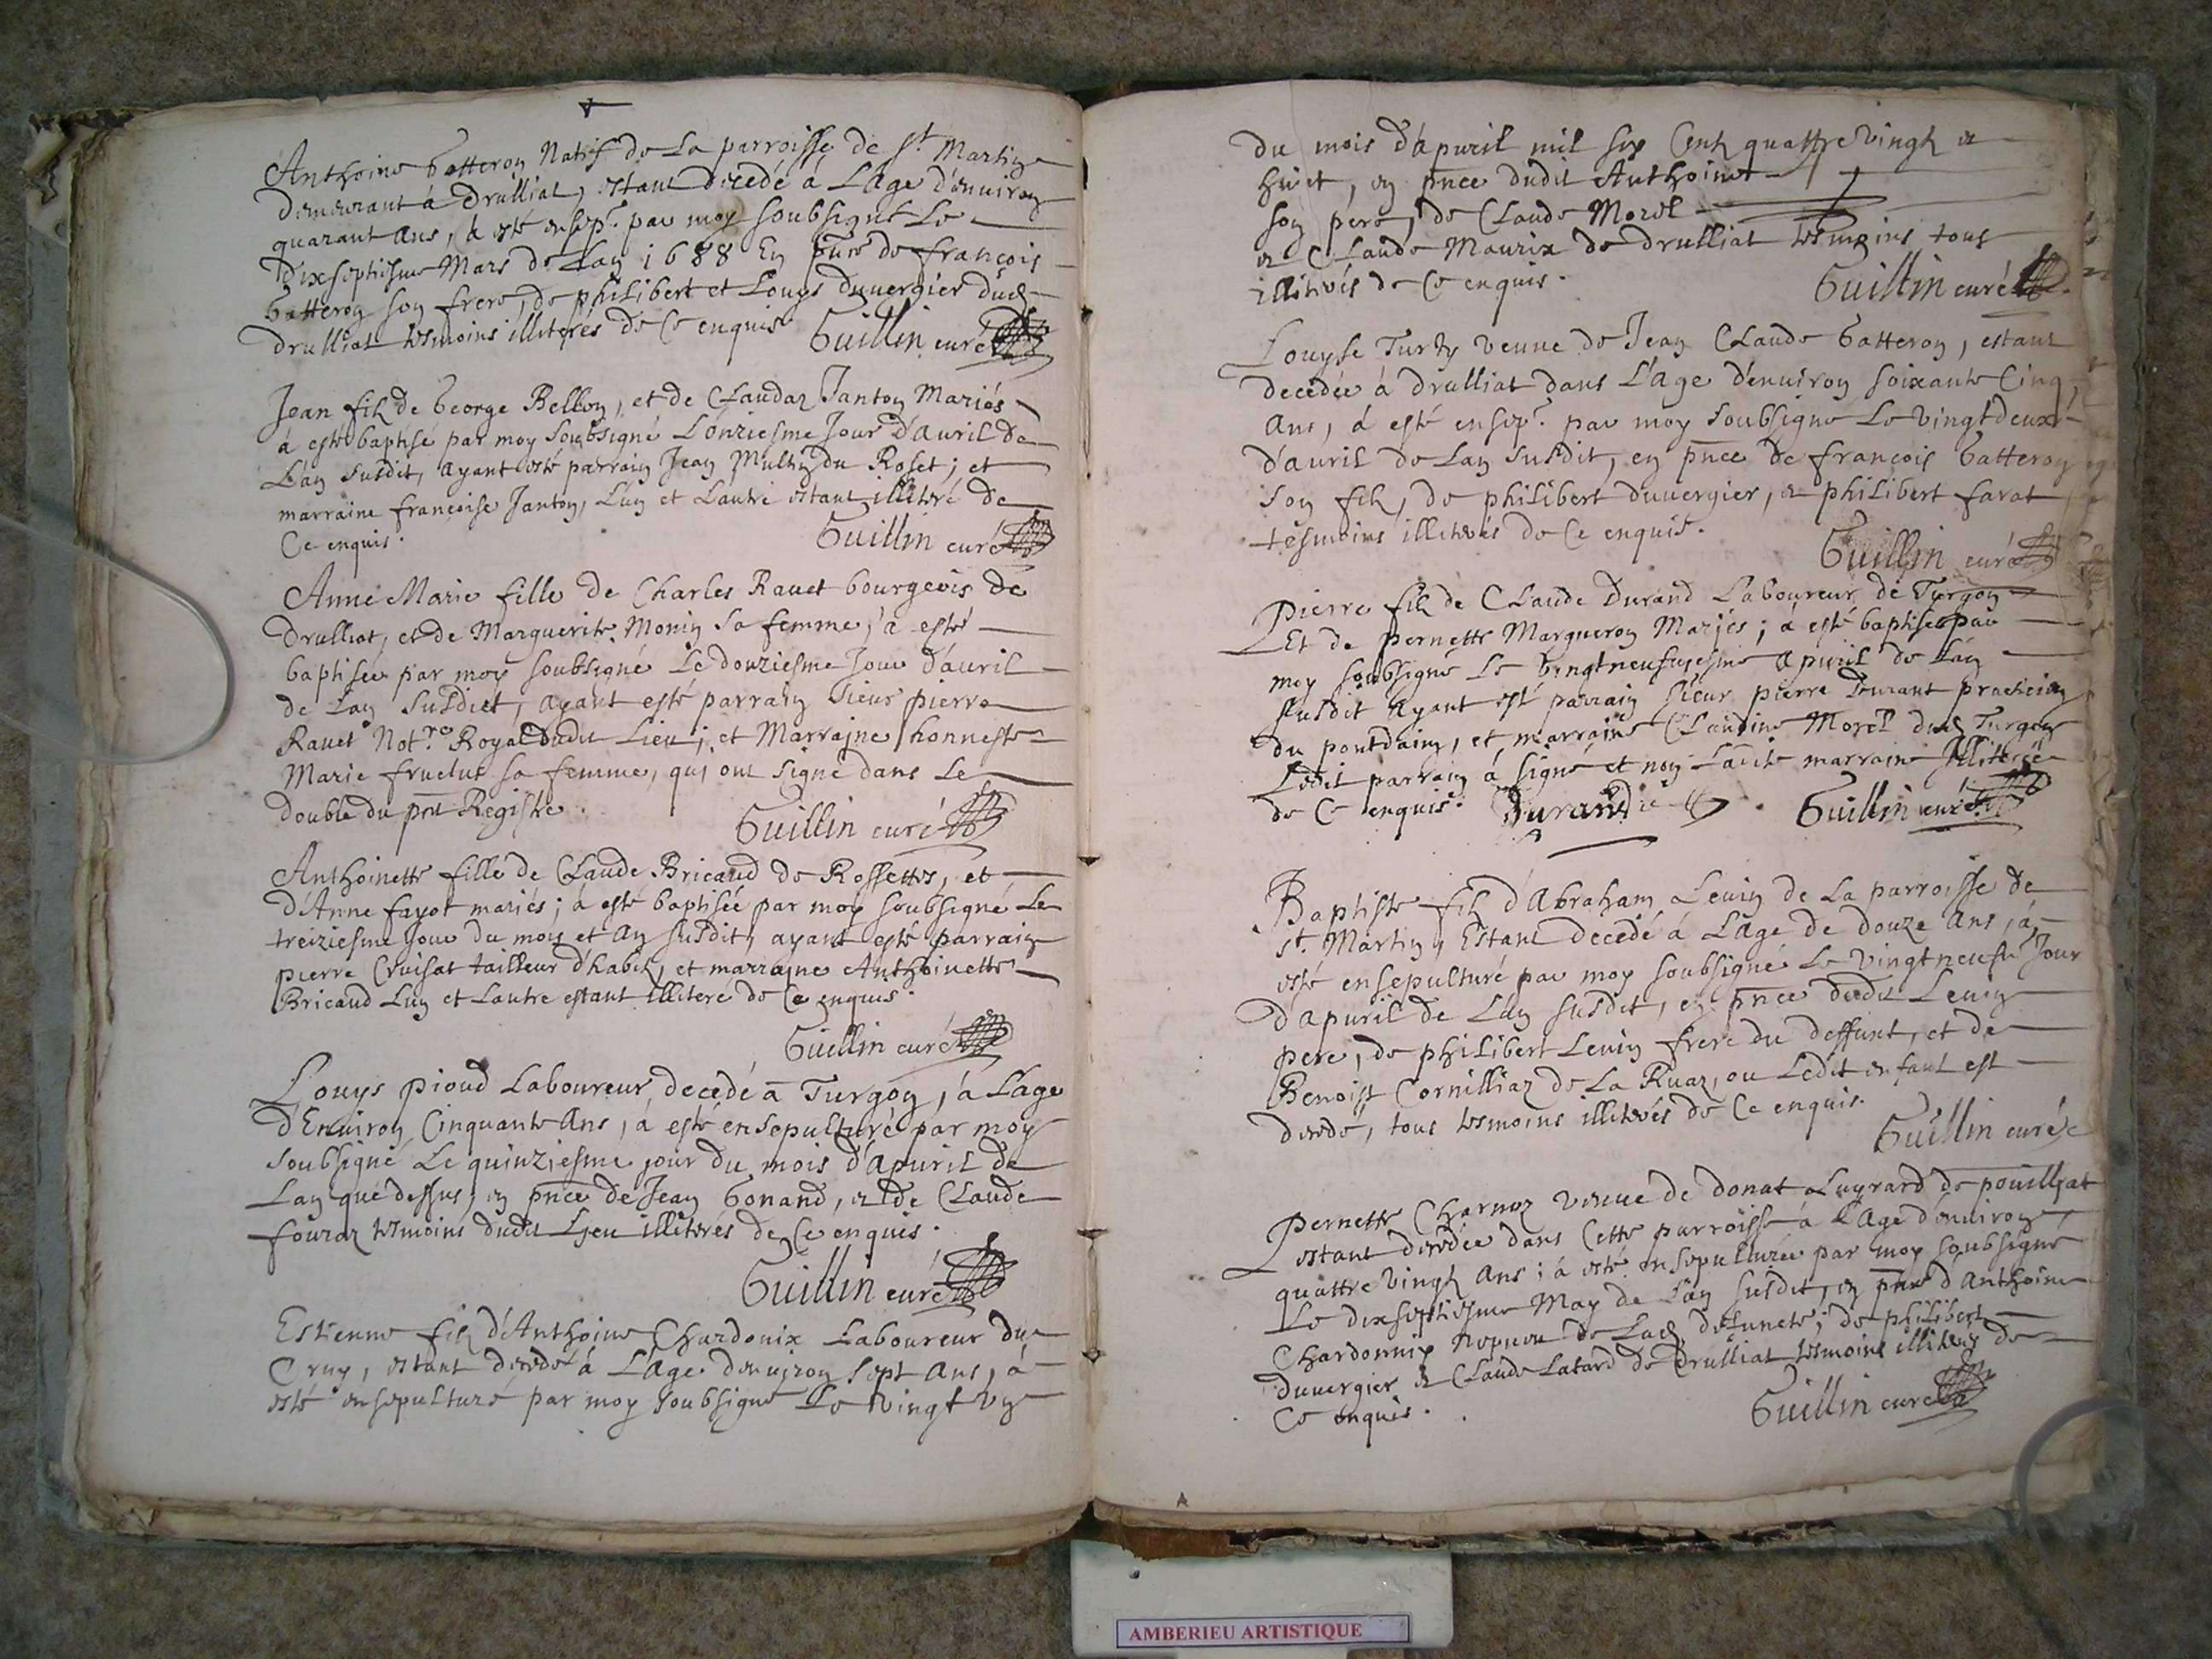 Anthoine Gatteron Natif de La parroisse de St Martin
demeurant à drulliat, estant decedé à L'âge d'enuiron
quarant ans, à esté ensep.ré par moy soubsigné Le
dixseptiesme Mars de L'an 1688 En pnce de françois
Gatteron son frere, de philibert et Louys duuergier dud.
drulliat tesmoins illiterés de Ce enquis Guillin curé
Jean filz de George Bellon, et de Claudaz Janton Mariés
à esté baptisé par moy soubsigné L'onziesme Jour d'auril de
L'an susdit, ayant esté parrain Jean Multin du Roset; et
marraine françoise Janton, L'un et L'autre estant illiteré de
Ce enquis.
Guillin curé
Anne Marie fille de Charles Rauet bourgeois de
drulliat, et de Marguerite Monin sa femme, à esté
baptisée par moy soubsigné Le douziesme Jour d'auril
de L'an susdict, ayant esté parrain sieur pierre
Rauet Not.re Royal dudit Lieu; et Marrajne honneste
Marie fructus sa femme, quj ont signé dans Le
double du pnt Registre.
Guillin curé
Anthoinette fille de Claude Bricaud de Rossettes, et
d'Anne fayot mariés; à esté baptisée par moy soubsigné Le
treiziesme jour du mois et an susdit, ayant esté parrain
pierre Cruisat tailleur d'habitz, et marrajne Anthoinette
Bricaud L'un et L'autre estant illiteré de Ce enquis.
Guillin curé
Louys pioud Laboureur, decedé à Turgon, à L'age
d'Enuiron Cinquante Ans, à esté ensepulturé par moy
soubsigné Le quinziesme jour du mois d'apuril de
L'an que dessus, en pnce de Jean Gonand, et de Claude
fouraz tesmoins dudit Ljeu illiterés de Ce enquis.
Guillin curé
Estienne filz d'Anthoine Chardonix Laboureur du
Cruy, estant decedé à L'âge d'enuiron sept ans, à
esté ensepulturé par moy soubsigné Le vingt un
du mois d'apuril mil six Centz quattre vingtz et
huict, en pnce dudit Anthoine
son pere, de Claude Morel
et Claude Maurix de drulliat tesmoins tous
illiterés de Ce enquis.
Guillin curé
Louyse Turty veuue de Jean Claude Gatteron, estant
decedée à drulliat dans L'âge d'enuiron soixante Cinq
Ans, à esté ensep.ré par moy soubsigné Le vingtdeux.e
d'auril de L'an susdit, en pnce de françois Gatteron
son filz, de philibert duuergier, et philibert farat
tesmoins illiterés de Ce enquis.
Guillin curé
Pierre filz de Claude Durand Laboureur de Turgon
Et de pernette Margueron Marjés; à esté baptisé par
moy soubsigné Le vingtneufuiesme apuril de L'an
susdit ayant esté parrain sieur pierre Durant practicien
du pontdain, et marraine Claudine Morel dud. Turgon
Ledit parrain à signé et non Ladite marraine Jlliterée
de Ce enquis. Durand Guillin curé
Baptiste filz d'Abraham Leuin de La parroisse de
St. Martin, Estant decedé à L'age de douze Ans, à
esté ensepulturé par moy soubsigné Le vingtneufu.e Jour
d'apuril de L'an susdit, en pnce dudit Leuin
pere, de philibert Leuin frere du deffunt, et de
Benoist Cornilliaz de La Ruaz, ou Ledit enfant est
decedé, tous tesmoins illiterés de Ce enquis.
Guillin curé
Pernette Charnoz veuue de donat Luyrard de pouilljat
estant decedée dans Cette parroisse à L'age d'enuiron
quattre vingtz Ans; à esté ensepulturée par moy soubsigné
Le dixseptiesme May de L'an susdit, en pnce d'Anthoine
Chardonnix nepueu de Lad. defuncte; de philibert
duuergier et Claude Latard de drulliat tesmoins illiterés de
Ce enquis.
Guillin curé
AMBERIEU ARTISTIQUE